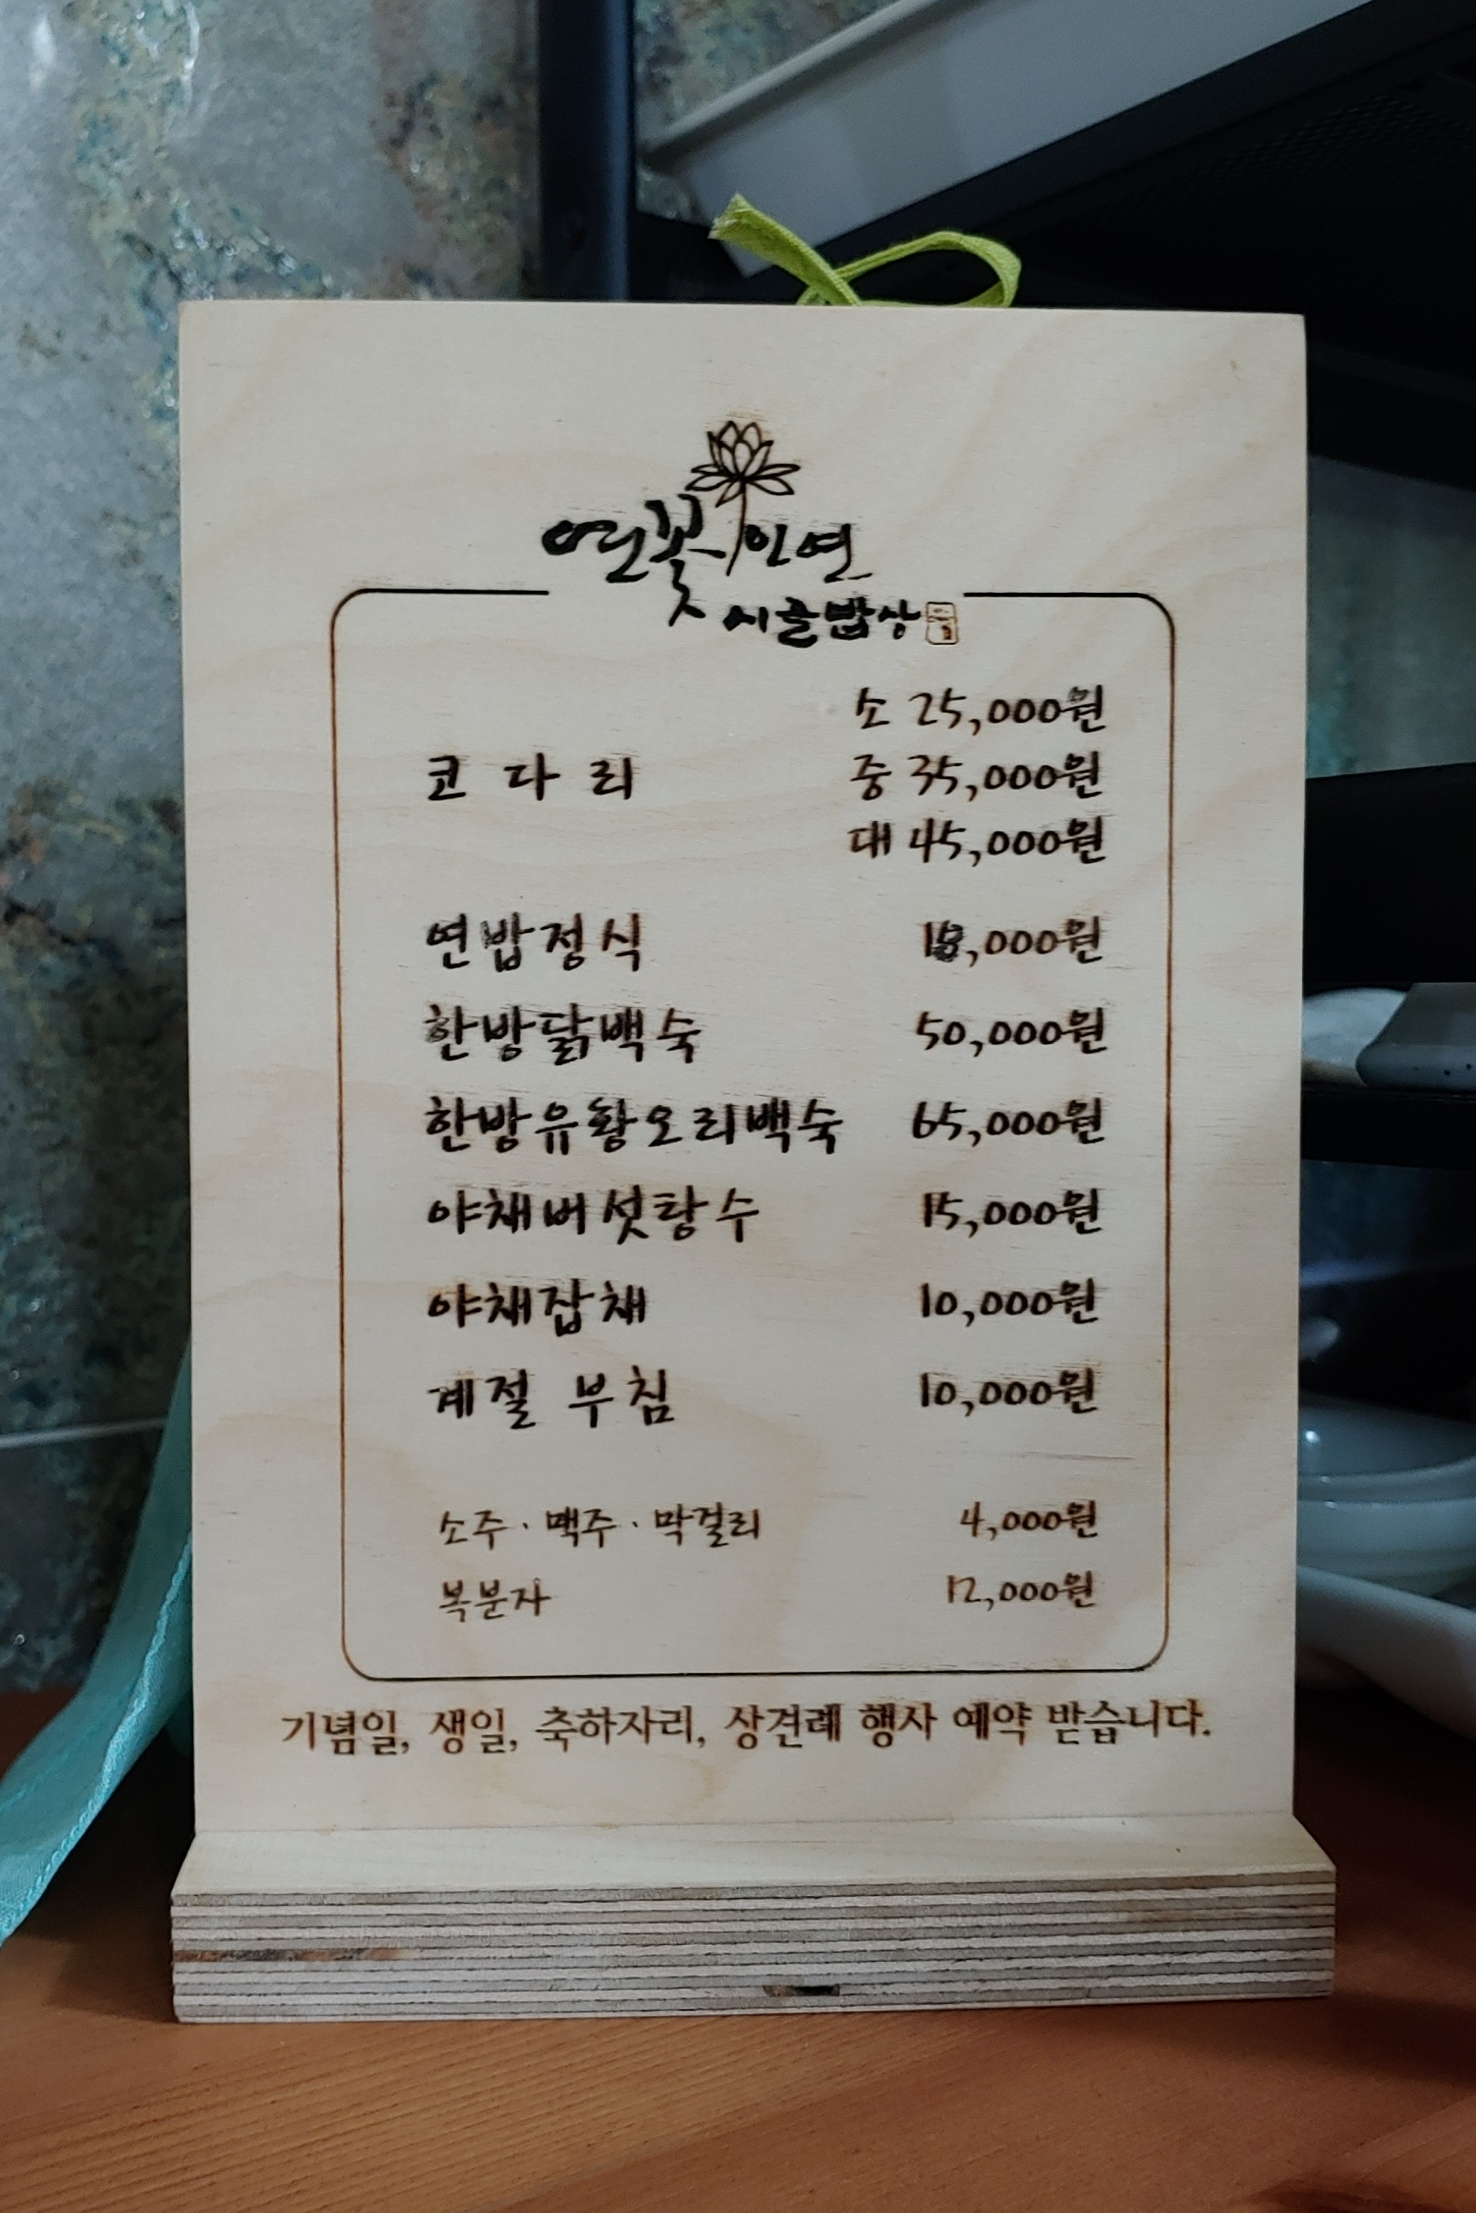 연꽃인연
시골밥상
소 25,000원
코다리 중 35,000원
대 45,000원
연밥정식
한방닭백숙 50,000원
한방유황오리백숙 65,000원
야채버섯탕수 15,000원
야채잡채 10,000원
계절 부침 10,000원
소주·맥주·막걸리 4,000원
복분자 12,000원
기념일, 생일, 축하자리, 상견례 행사 예약 받습니다.